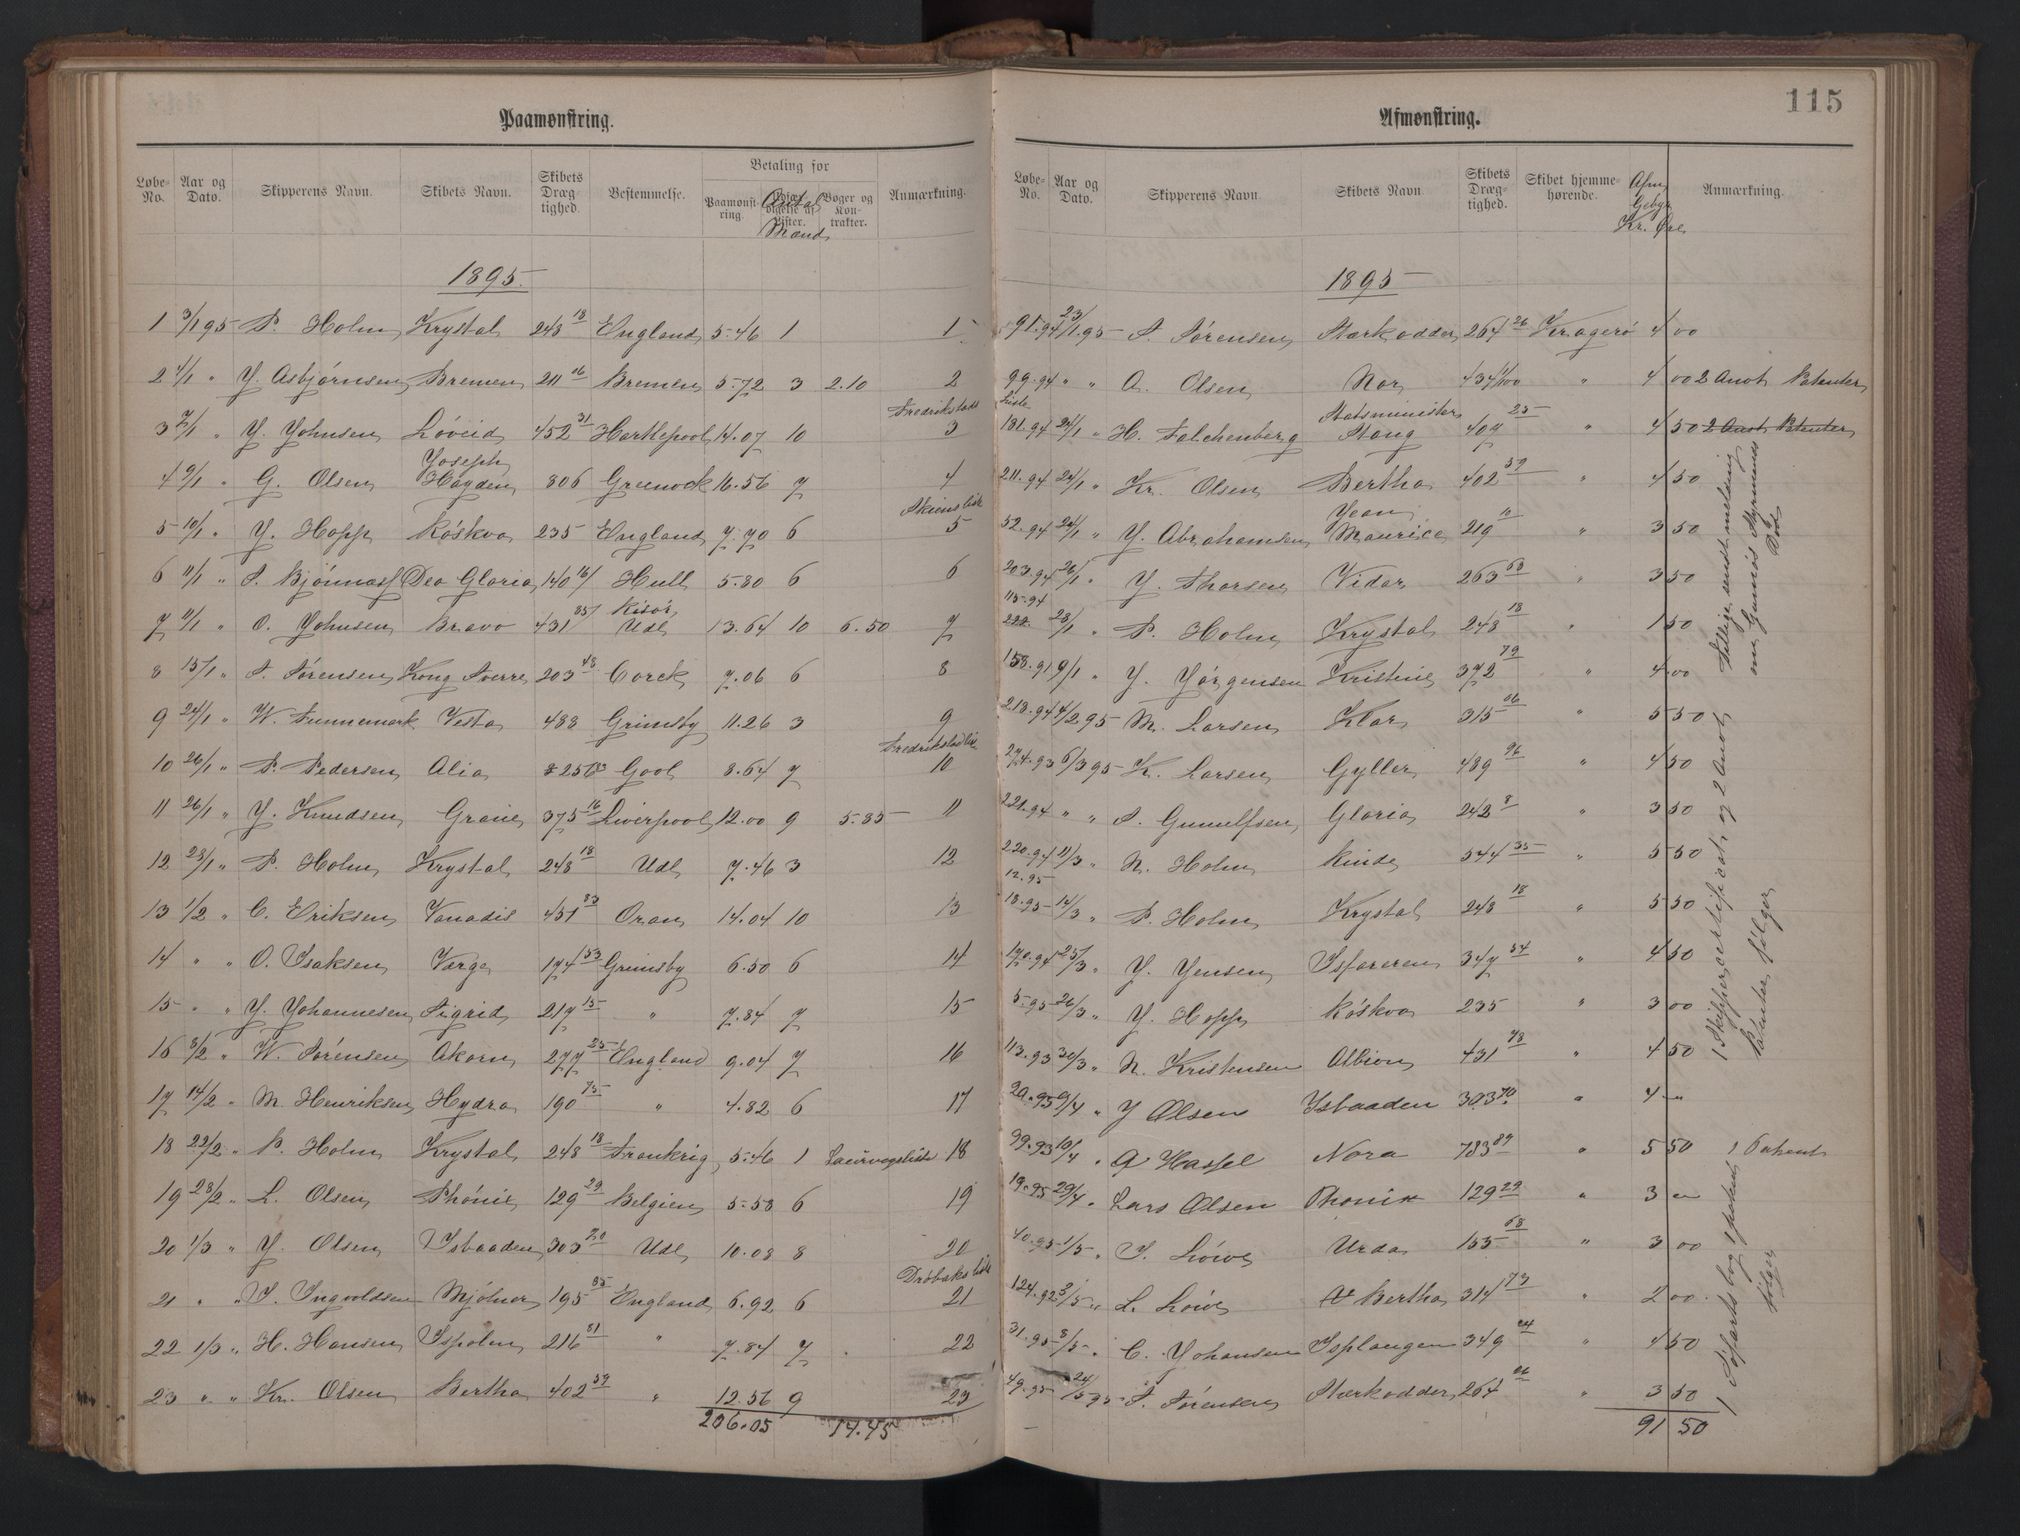 Paamønstring.
Løbe-No. Aar og Dato. Skippérens Navn. Skibets Navn. Skibets Dræg-tighed. Bestemmelse. Betaling for Paamønst-ring. Antal Mænd Bøger og Kon-trakter. Anmærkning.
1895
1 3/1 95 P. Holm Krystal 248 18 England 5.46 1 1
2 4/1 " J. Asbjørnsen Bremen 211 16 Bremen 5.72 3 2.10 2
Fredrikstads
3 7/1 " J. Johnsen Løveid 452 31 Hartlepool 14.07 10 3
4 9/1 " G. Olsen Joseph Haydn 806 Greenock 16.56 7 4
Skiensliste
5 10/1 " J. Hopp Røskva 235 England 7.70 6 5
6 11/1 " Deo Gloria 140 16 Hull 5.80 6 6
7 11/1 " O. Johnsen Bravo 431 85 Risør Udl 13.64 10 6.50 7
8 15/1 " S. Sørensen Kong Sverre 203 48 Corck 7.06 6 8
9 24/1 " W. Tunnemark Vesta 488 Grimsby 11.26 3 9
Fredrikstadliste
10 26/1 " P. Pedersen Alia Gool 8.64 7 10
11 26/1 " J. Knudsen Grane 375 16 Liverpool 12.00 9 5.85 11
12 28/1 " P. Holm Krystal 248 18 Udl 7.46 3 12
13 1/2 " C. Eriksen Vanadis 451 83 Oran 14.04 10 13
14 " " O. Isaksen Varge 174 53 Grimsby 6.50 6 14
15 " " J. Johannesen Sigrid 217 15 " 7.84 7 15
16 8/2 " W. Sørensen Akorn 277 25 England 9.04 7 16
17 14/2 " M. Henriksen Hydra 190 75 " 4.82 6 17
18 22/2 " P. Holm Krystal 248 18 Frankrig 5.46 1 Laurvogsliste 18
19 28/2 " L. Olsen Phønix 129 29 Belgien 5.58 6 19
20 1/3 " J. Olsen Isbaaden 303 70 Udl 10.08 8 20
Drøbaksliste
21 " " I. Ingvoldsen Mjølner 195 85 England 6.92 6 21
22 1/3 " H. Hansen Ispolen 216 81 " 7.84 7 22
23 " " Kr. Olsen Bertha 402 59 " 12.56 9 23
206.05 14.45
115
Afmønstring.
Løbe-No. Aar og Dato. Skipperens Navn. Skibets Navn. Skibets Dræg-tighed. Skibet hjemme-hørende. Afm. Gebyr Kr. Øre Anmærkning.
1895
91.94 23/1 95 S. Sørensen Stærkodder 264 26 Kragerø 4 00
99.94 " " A. Olsen Nor 434 " 4 00 2 Anot Patenter
Liste
181.94 24/1 " H. Falchenberg Statsminister Stang 407 25 " 4 50 2 Anot Patenter
211.94 24/1 " Kr. Olsen Bertha 402 59 " 4 50
52.94 24/1 " J. Abrahamsen Jean Maurice 219 11 " 3 50
203.94 26/1 " J. Thorsen Vidar 263 68 " 3 50
115.94
222. 28/1 " P. Holm Krystal 248 18 " 1 50
158.91 9/1 " J. Jørgensen Kristine 372 79 " 4 00
218.94 4/2 95 M. Larsen Klar 315 06 " 5 50
274.93 6/3 95 K. Larsen Gyller 489 96 " 4 50
221.94 " " S. Gunulfsen Gloria 242 8 " 3 50
220.94 11/3 " N. Holm Rinde 544 35 " 5 50
12.95
18.95 14/3 " P. Holm Krystal 248 18 " 5 50
170.94 25/3 " J. Jensen Isfareren 347 54 " 4 50
5.95 26/3 " J. Hopp Røskva 235 " 3 00
113.93 30/3 " N. Kristensen Albion 431 78 " 4 50
20.95 9/4 " J Olsen Isbaaden 303 70 " 4 "
99.93 10/4 " A Hassel Nora 783 89 " 5 50 1 Patent
19.95 29/4 " Lars Olsen Phønix 129 29 " 3 "
40.95 1/5 " I. Løwe Urda 155 68 " 3 00
124.92 3/5 " L. Løwe Bertha 314 73 " 2 00
31.95 8/5 " C. Johansen Isplangen 349 24 " 4 50
49.95 24/5 95 S. Sørensen Stærkodder 264 26 " 3 50
91 50
Tillige sendt melding om Styrmands Død
1 Skippercertificat og 2 Anot Patenter følger
1 Søfartsbog 1 patent følger